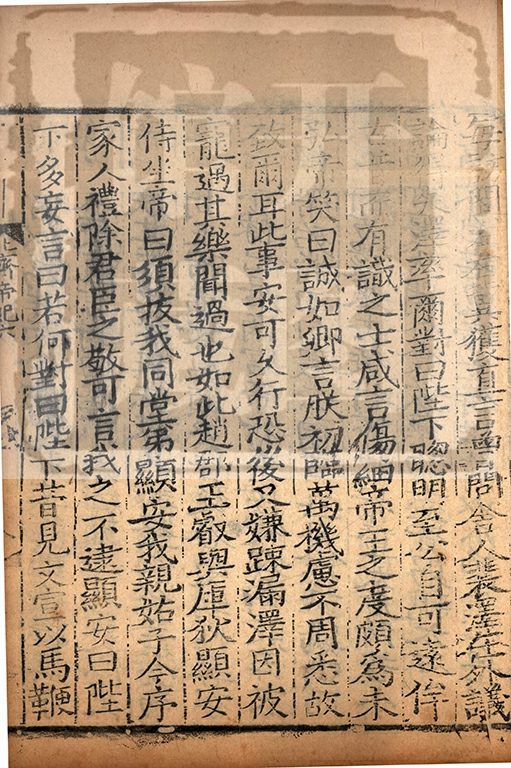 每訪問左右冀獲直言曾問舍人裴澤在外議
論得失澤率爾對曰陛下聰明至公自可遠侔
古昔而有識之士咸言傷細帝王之度頗爲未
弘帝笑曰誠如卿言朕初臨萬機慮不周悉故
致爾耳此事安可久行恐後又嫌踈漏澤因被
寵遇其樂聞過也如此趙郡王叡與庫狄顯安
侍坐帝曰須拔我同堂弟顯安我親姑子今序
家人禮除君臣之敬可言我之不逮顯安曰陛
下多妄言曰若何對曰陛下昔見文宣以馬鞭
北齊帝紀六